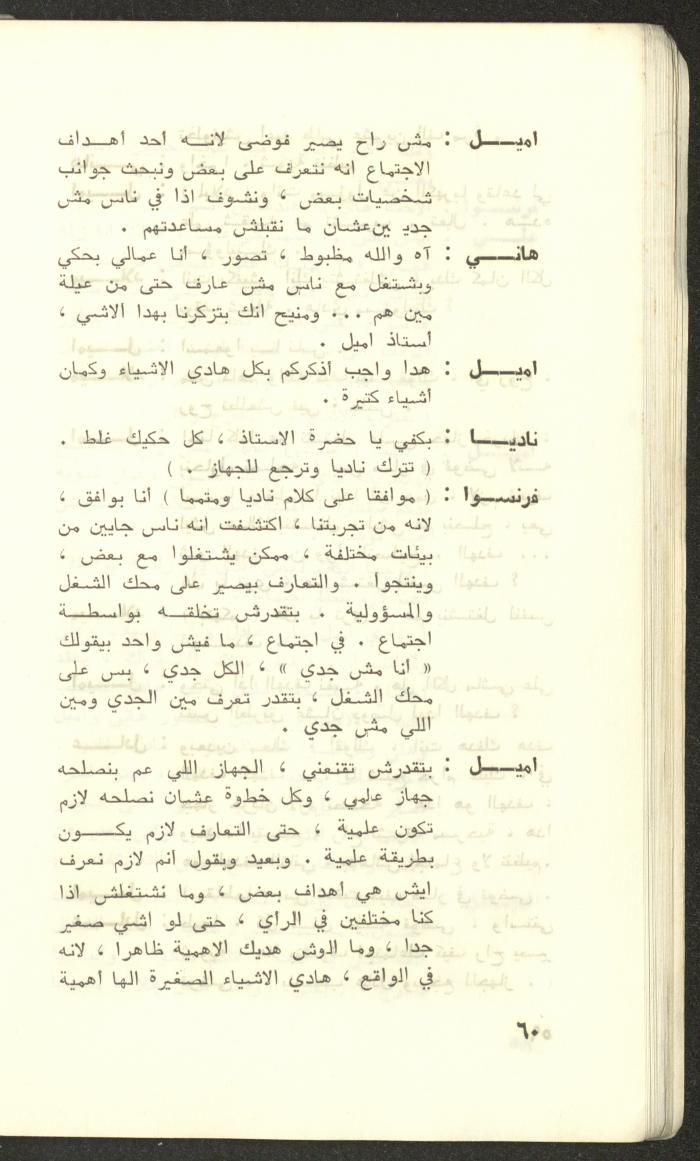 اميـــل : مش راح يصير فوضى لانــه احد اهــداف
الاجتماع انه نتعرف على بعض ونبحث جوانب
شخصيات بعض ، ونشوف اذا في ناس مش
جديين عشان ما نقبلش مساعدتهم .
هانـــي : آه والله مظبوط ، تصور ، أنا عمالي بحكي
وبشتغل مع ناس مش عارف حتى من عيلة
مين هم ... ومنيح انك بتزكرنا بهدا الاشي ،
أستاذ اميل .
اميـــل : هدا واجب أذكركم بكل هادي الاشياء وكمان
أشياء كتيرة .
ناديـــا : بكفي يا حضرة الاستاذ ، كل حكيك غلط .
( تترك ناديا وترجع للجهاز . )
فرنســوا : ( موافقا على كلام ناديا ومتمما ) أنا بوافق ،
لانه من تجربتنا ، اكتشفت انه ناس جايين من
بيئات مختلفة ، ممكن يشتغلوا مع بعض ،
وينتجوا . والتعارف بيصير على محك الشغل
والمسؤولية . بتقدرش تخلقــه بواسطــة
اجتماع . في اجتماع ، ما فيش واحد بيقولك
« أنا مش جدي » ، الكل جدي ، بس على
محك الشغل ، بتقدر تعرف مين الجدي ومين
اللي مش جدي .
اميـــل : بتقدرش تقنعني ، الجهاز اللي عم بنصلحه
جهاز علمي ، وكل خطوة عشان نصلحه لازم
تكون علمية ، حتى التعارف لازم يكـــون
بطريقة علمية . وبعيد وبقول انم لازم نعرف
ايش هي أهداف بعض ، وما نشتغلش اذا
كنا مختلفين في الرأي ، حتى لو اشي صغير
جدا ، وما الوش هديك الاهمية ظاهرا ، لانه
في الواقع ، هادي الاشياء الصغيرة الها أهمية
٦٠